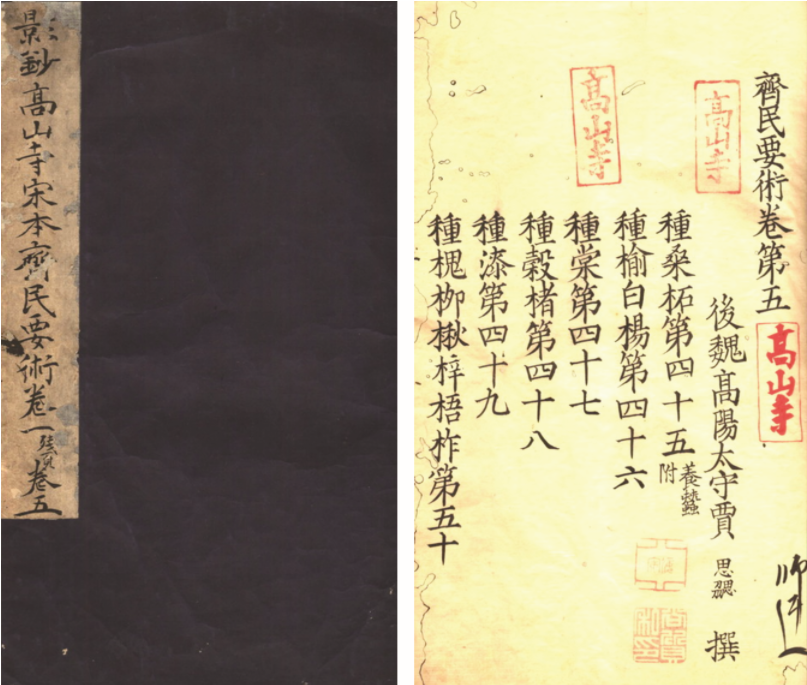 景鈔高山寺宋本齊民要術卷一殘卷五
齊民要術卷第五
高山寺
後魏高陽太守賈思勰撰
高山寺
種桑柘第四十五養蠶附
種榆白楊第四十六
高山寺
種棠第四十七
種榖楮第四十八
種漆第四十九
種槐柳楸梓梧柞第五十